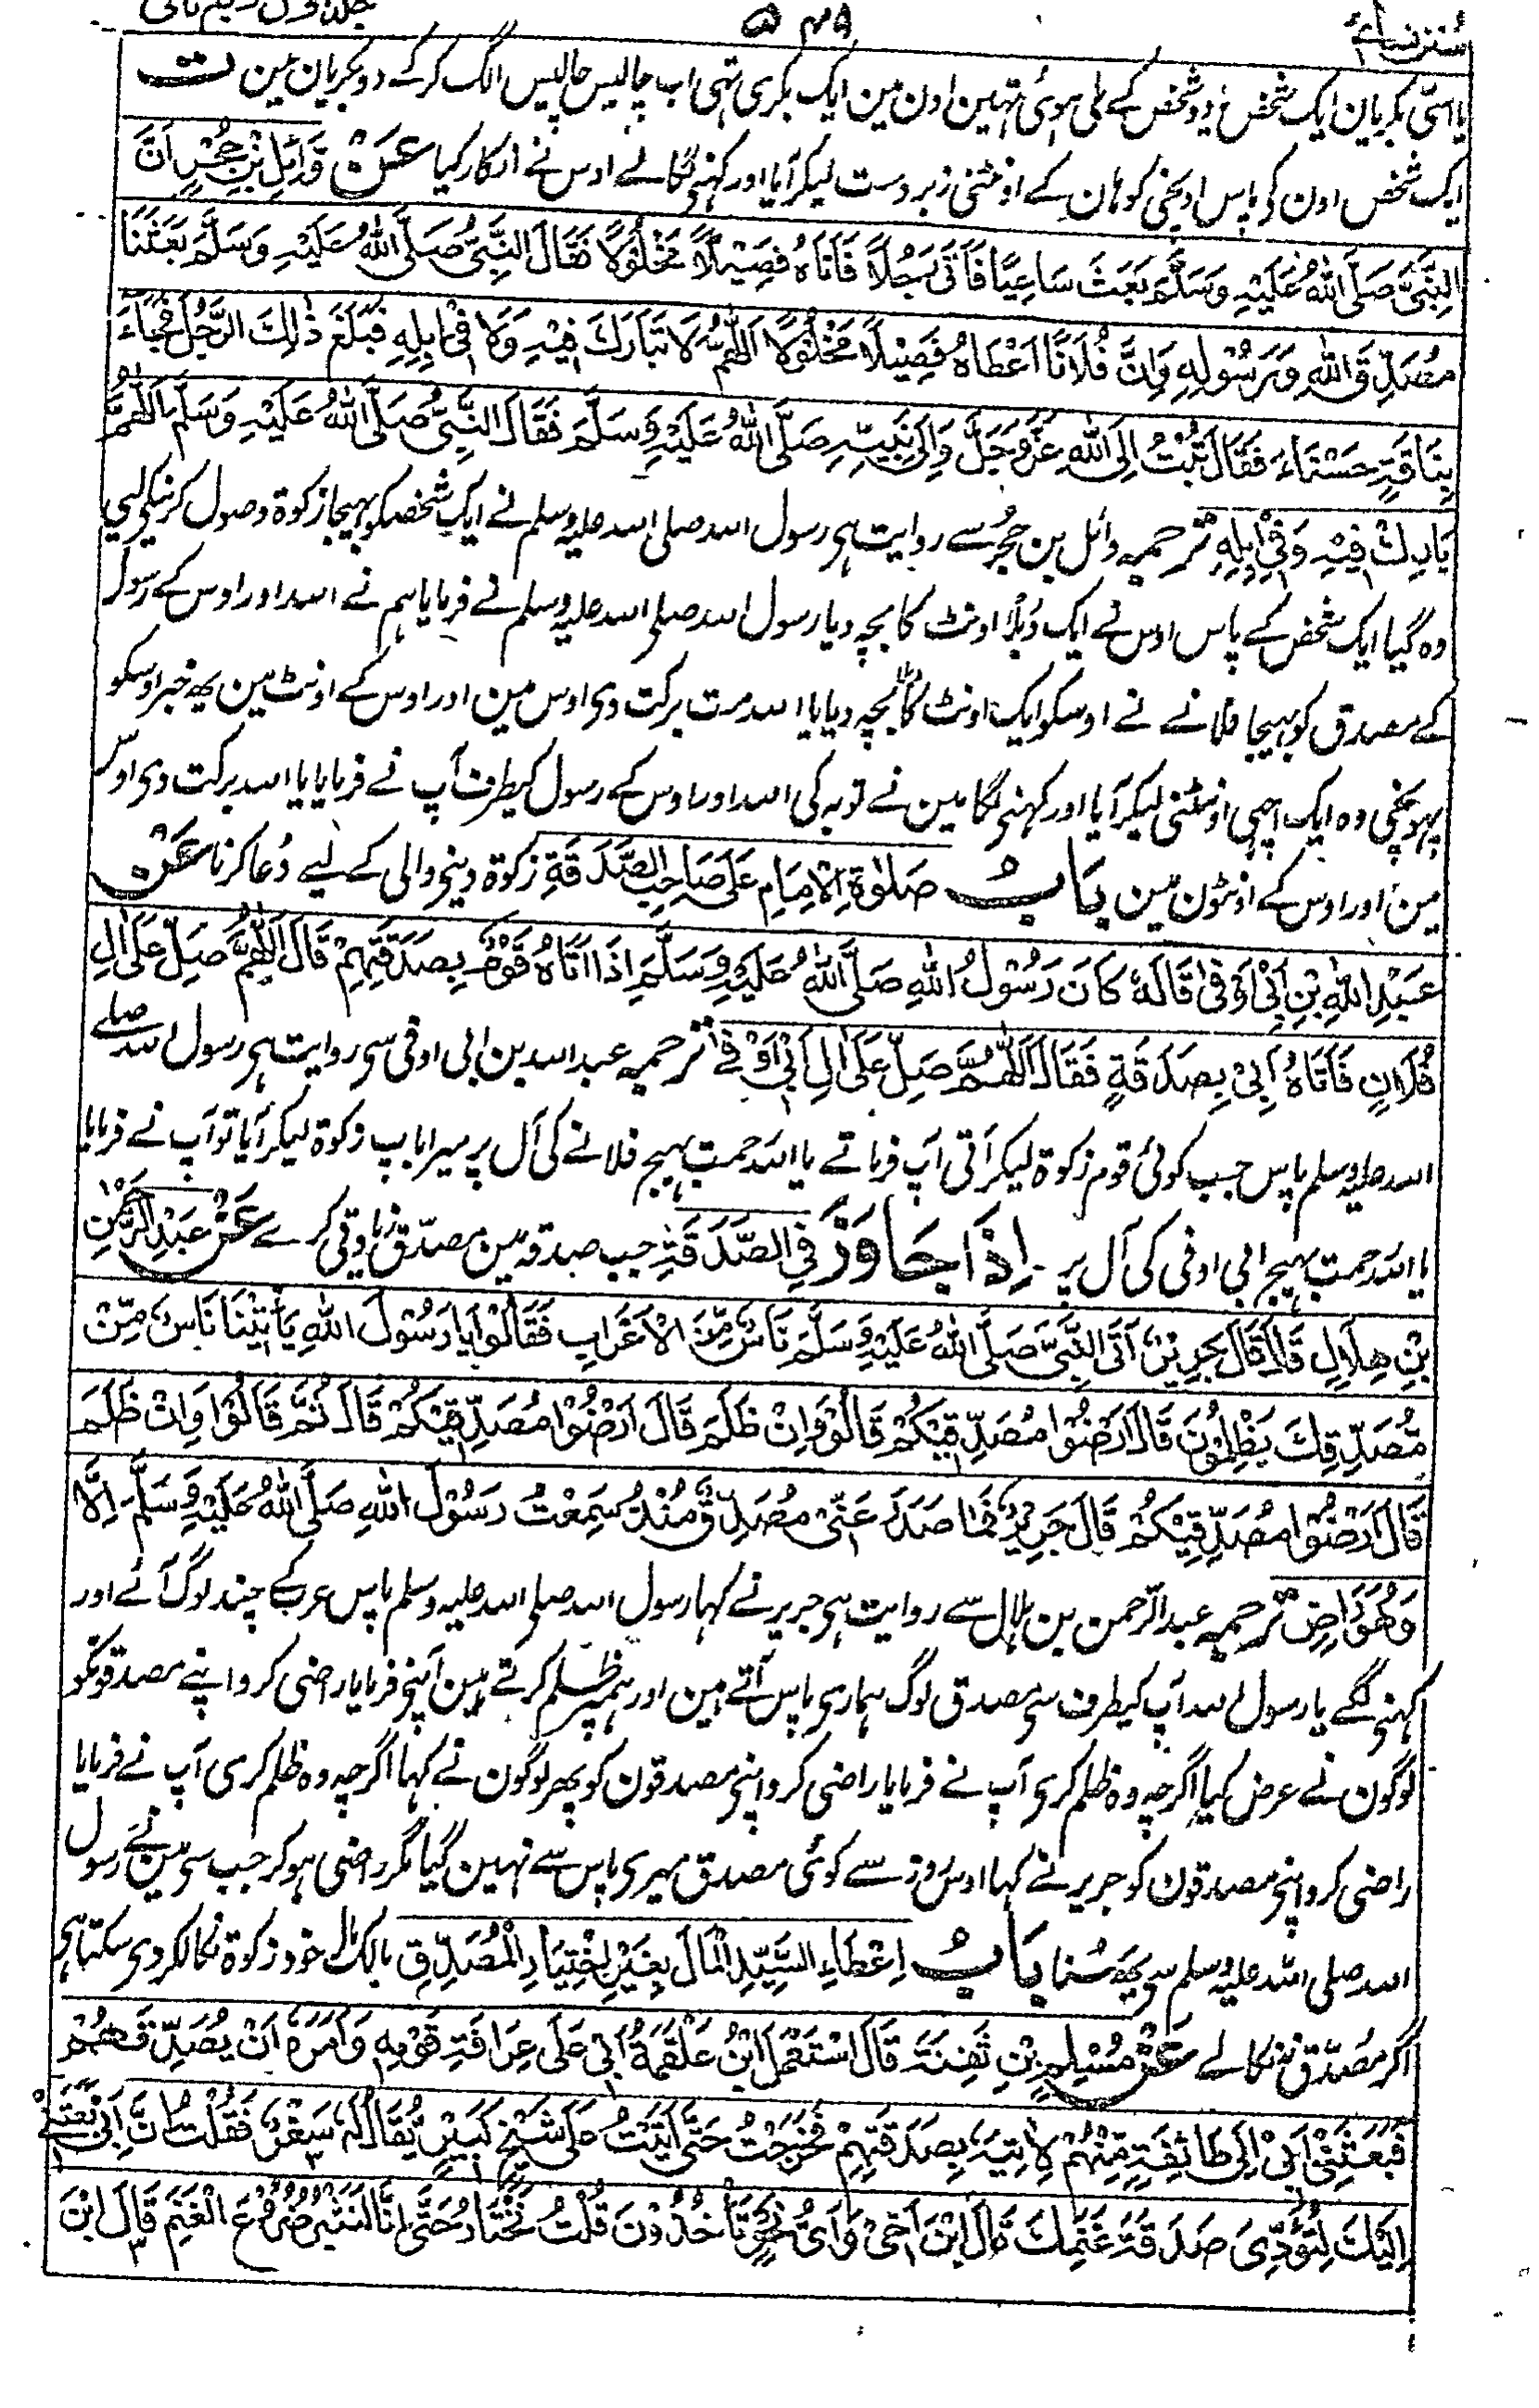 سنن نسائی ۵۴۸
یا اسّی بکریان ایک شخص نے دو شخص کے ملی ہوئی تہین اون مین ایک بکری تہی اب چالیس چالیس الگ کر کے دو بکریان مین ت
ایک شخص اون کی پاس اونچی کوہان کے اونٹنی زبردست لیکر آیا اور کہنی لگا لے اوس نے انکار کیا عَنْ وَائِلِ بْنِ حُجْرٍ اَنَّ
النَّبِيَّ صَلَّى اللهُ عَلَيْهِ وَسَلَّمَ بَعَثَ سَاعِيًا فَاَتٰى رَجُلًا فَاَتَاهُ فَصِيْلًا مَخْلُوْلًا فَقَالَ النَّبِيُّ صَلَّى اللهُ عَلَيْهِ وَسَلَّمَ بَعَثْنَا
مُصَدِّقَ اللهِ وَرَسُوْلِهِ وَاِنَّ فُلَانًا اَعْطَاهُ فَصِيْلًا مَخْلُوْلًا اَللّٰهُمَّ لَا تَبَارَكَ فِيْهِ وَلَا فِيْ اِبِلِهِ فَبَلَغَ ذٰلِكَ الرَّجُلَ فَجَاءَ
بِنَاقَةٍ حَسْنَاءَ فَقَالَ تُبْتُ اِلَى اللهِ عَزَّوَجَلَّ وَاِلٰى نَبِيِّهِ صَلَّى اللهُ عَلَيْهِ وَسَلَّمَ فَقَالَ النَّبِيُّ صَلَّى اللهُ عَلَيْهِ وَسَلَّمَ اَللّٰهُمَّ
بَارِكْ فِيْهِ وَفِيْ اِبِلِهِ ترجمہ وائل بن حجر سے روایت ہی رسول اللہ صلی اللہ علیہ وسلم نے ایک شخص کو بہیجا زکوۃ وصول کرنیکی لیی
وہ گیا ایک شخص کے پاس اوس نے ایک دُبلا اونٹ کا بچہ دیا رسول اللہ صلی اللہ علیہ وسلم نے فرمایا ہم نے اللہ اور اوس کے رسول
کے مصدق کو بہیجا فلانے نے اوسکو ایک اونٹ کا بچہ دیا یا اللہ مت برکت دی اوس مین اور اوس کے اونٹ مین یہ خبر اوسکو
پہونچی وہ ایک اچہی اونٹنی لیکر آیا اور کہنی لگا مین نے توبہ کی اللہ اور اوس کے رسول کیطرف آپ نے فرمایا یا اللہ برکت دی اوس
مین اور اوس کے اونٹون مین بَابُ صَلٰوةِ الْاِمَامِ عَلٰى صَاحِبِ الصَّدَقَةِ زکوۃ دینی والی کے لیے دُعا کرنا عَنْ
عَبْدِ اللهِ بْنِ اَبِيْ اَوْفٰى قَالَ كَانَ رَسُوْلُ اللهِ صَلَّى اللهُ عَلَيْهِ وَسَلَّمَ اِذَا اَتَاهُ قَوْمٌ بِصَدَقَتِهِمْ قَالَ اَللّٰهُمَّ صَلِّ عَلٰى اٰلِ
فُلَانٍ فَاَتَاهُ اَبِيْ بِصَدَقَةٍ فَقَالَ اَللّٰهُمَّ صَلِّ عَلٰى اٰلِ اَبِيْ اَوْفٰى ترجمہ عبد اللہ بن ابی اوفی سی روایت ہی رسول اللہ صلے
اللہ علیہ وسلم پاس جب کوئی قوم زکوۃ لیکر آتی آپ فرماتے یا اللہ رحمت بہیج فلانے کی آل پر میرا باپ زکوۃ لیکر آیا تو آپ نے فرمایا
یا اللہ رحمت بہیج ابی اوفی کی آل پر اِذَا جَاوَزَ فِي الصَّدَقَةِ جب صدقہ مین مصدّق زیادتی کرے عَنْ عَبْدِ الرَّحْمٰنِ
بْنِ هِلَالٍ قَالَ قَالَ جَرِيْرٌ اَتَى النَّبِيَّ صَلَّى اللهُ عَلَيْهِ وَسَلَّمَ نَاسٌ مِّنَ الْاَعْرَابِ فَقَالُوْا يَا رَسُوْلَ اللهِ يَاْتِيْنَا نَاسٌ مِّنْ
مُّصَدِّقِكَ يَظْلِمُوْنَ قَالَ اَرْضُوْا مُصَدِّقِيْكُمْ قَالُوْا وَاِنْ ظَلَمَ قَالَ اَرْضُوْا مُصَدِّقِيْكُمْ قَالَ ثُمَّ قَالُوْا وَاِنْ ظَلَمَ
قَالَ اَرْضُوْا مُصَدِّقِيْكُمْ قَالَ جَرِيْرٌ فَمَا صَدَرَ عَنِّيْ مُصَدِّقٌ مُنْذُ سَمِعْتُ رَسُوْلَ اللهِ صَلَّى اللهُ عَلَيْهِ وَسَلَّمَ اِلَّا
وَهُوَ رَاضٍ ترجمہ عبد الرّحمن بن ہلال سے روایت ہی جریر نے کہا رسول اللہ صلی اللہ علیہ وسلم پاس عرب کے چند لوگ آئے اور
کہنی لگے یا رسول اللہ آپ کیطرف سی مصدق لوگ ہماری پاس آتے ہین اور ہمپر ظلم کرتے ہین آپنی فرمایا راضی کرو اپنے مصدقونکو
لوگون نے عرض کیا اگرچہ وہ ظلم کری آپ نے فرمایا راضی کرو اپنی مصدقون کو پھر لوگون نے کہا اگرچہ وہ ظلم کری آپ نے فرمایا
راضی کرو اپنی مصدقون کو جریر نے کہا اوس روز سے کوئی مصدق میری پاس سے نہین گیا مگر راضی ہو کر جب سی مین نے رسول
اللہ صلی اللہ علیہ وسلم سی یہ سُنا بَابُ اِعْطَاءِ السَّيِّدِ الْمَالَ بِغَيْرِ اخْتِيَارِ الْمُصَدِّقِ مالک مال خود زکوۃ نکالکر دی سکتا ہی
اگر مصدّق نہ نکالے عَنْ مُسْلِمِ بْنِ ثَفِنَةَ قَالَ اسْتَعْمَلَ ابْنُ عَلْقَمَةَ اَبِيْ عَلٰى عِرَافَةِ قَوْمِهِ وَاَمَرَهُ اَنْ يُّصَدِّقَهُمْ
فَبَعَثَنِيْ اَبِيْ اِلٰى طَائِفَةٍ مِّنْهُمْ لِاٰتِيَهُ بِصَدَقَتِهِمْ فَخَرَجْتُ حَتّٰى اَتَيْتُ عَلٰى شَيْخٍ كَبِيْرٍ يُّقَالُ لَهُ سَعْرٌ فَقُلْتُ اِنَّ اَبِيْ بَعَثَنِيْ
اِلَيْكَ لِتُؤَدِّيَ صَدَقَةَ غَنَمِكَ قَالَ ابْنَ اَخِيْ وَاَيُّ نَحْوٍ تَاْخُذُوْنَ قُلْتُ نَخْتَارُ حَتّٰى اِنَّا لَنَشْبُرُ ضُرُوْعَ الْغَنَمِ قَالَ ابْنَ